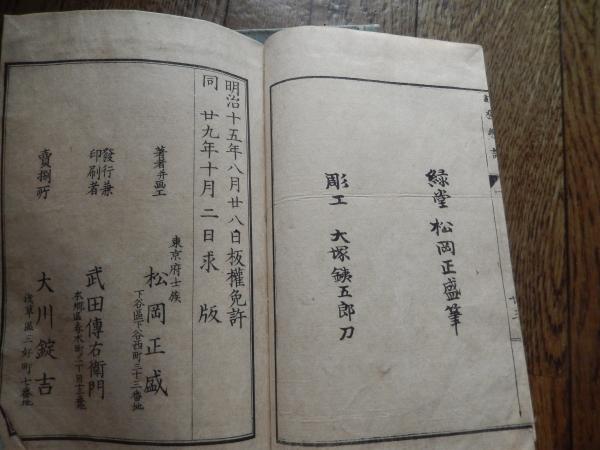 緑堂 松岡正盛筆
彫工 大塚銕五郎刀
廿三
明治十五年八月廿八日板權免許
同 廿九年十月二日求版
著者并画工
東京府士族
松岡正盛
下谷區下谷西町三十三番地
發行兼
印刷者
武田傳右衛門
本郷區春木町二丁目廿三番
賣捌所
大川錠吉
浅草區三好町七番地